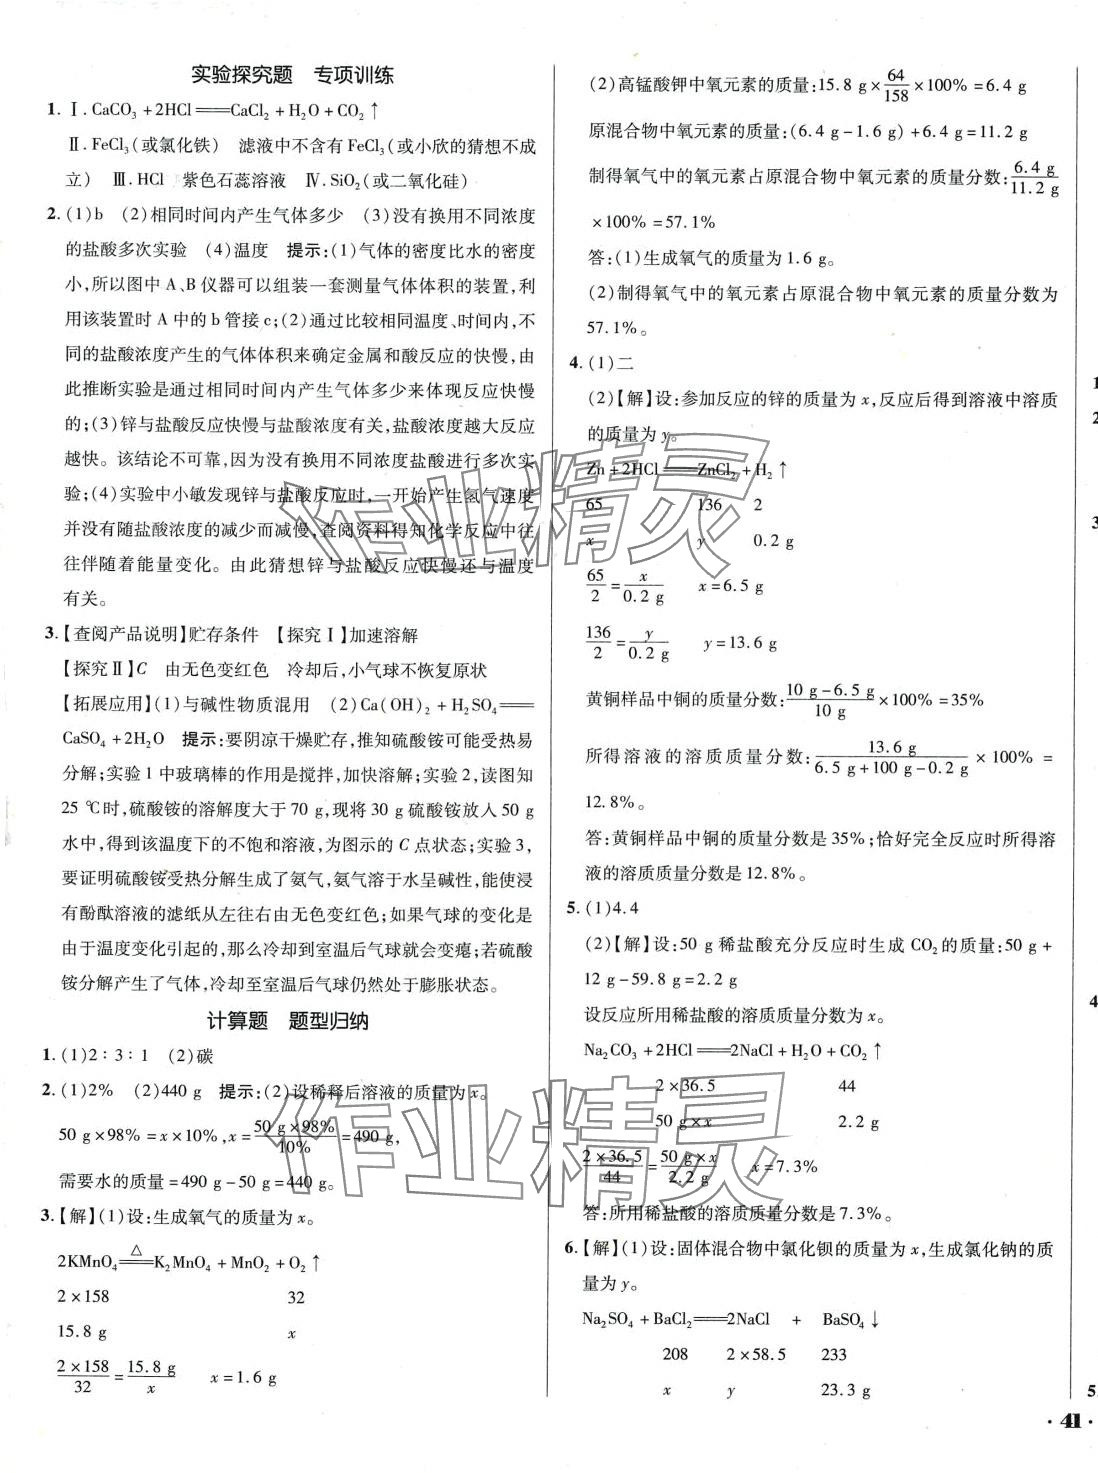 实验探究题 专项训练
1. Ⅰ. CaCO₃+2HCl══CaCl₂+H₂O+CO₂↑
Ⅱ. FeCl₃(或氯化铁) 滤液中不含有FeCl₃(或小欣的猜想不成
立) Ⅲ. HCl 紫色石蕊溶液 Ⅳ. SiO₂(或二氧化硅)
2. (1)b (2)相同时间内产生气体多少 (3)没有换用不同浓度
的盐酸多次实验 (4)温度 提示:(1)气体的密度比水的密度
小,所以图中A、B仪器可以组装一套测量气体体积的装置,利
用该装置时A中的b管接c;(2)通过比较相同温度、时间内,不
同的盐酸浓度产生的气体体积来确定金属和酸反应的快慢,由
此推断实验是通过相同时间内产生气体多少来体现反应快慢
的;(3)锌与盐酸反应快慢与盐酸浓度有关,盐酸浓度越大反应
越快。该结论不可靠,因为没有换用不同浓度盐酸进行多次实
验;(4)实验中小敏发现锌与盐酸反应时,一开始产生氢气速度
并没有随盐酸浓度的减少而减慢,查阅资料得知化学反应中往
往伴随着能量变化。由此猜想锌与盐酸反应快慢还与温度
有关。
3.【查阅产品说明】贮存条件 【探究Ⅰ】加速溶解
【探究Ⅱ】C 由无色变红色 冷却后,小气球不恢复原状
【拓展应用】(1)与碱性物质混用 (2)Ca(OH)₂+H₂SO₄══
CaSO₄+2H₂O 提示:要阴凉干燥贮存,推知硫酸铵可能受热易
分解;实验1中玻璃棒的作用是搅拌,加快溶解;实验2,读图知
25 ℃时,硫酸铵的溶解度大于70 g,现将30 g硫酸铵放入50 g
水中,得到该温度下的不饱和溶液,为图示的C点状态;实验3,
要证明硫酸铵受热分解生成了氨气,氨气溶于水呈碱性,能使浸
有酚酞溶液的滤纸从左往右由无色变红色;如果气球的变化是
由于温度变化引起的,那么冷却到室温后气球就会变瘪;若硫酸
铵分解产生了气体,冷却至室温后气球仍然处于膨胀状态。
计算题 题型归纳
1. (1)2∶3∶1 (2)碳
2. (1)2% (2)440 g 提示:(2)设稀释后溶液的质量为x。
50 g×98%=x×10%,x=50 g×98%/10%=490 g,
需要水的质量=490 g-50 g=440 g。
3.【解】(1)设:生成氧气的质量为x。
2KMnO₄══△K₂MnO₄+MnO₂+O₂↑
2×158 32
15.8 g x
2×158/32=15.8 g/x x=1.6 g
(2)高锰酸钾中氧元素的质量:15.8 g×64/158×100%=6.4 g
原混合物中氧元素的质量:(6.4 g-1.6 g)+6.4 g=11.2 g
制得氧气中的氧元素占原混合物中氧元素的质量分数:6.4 g/11.2 g
×100%=57.1%
答:(1)生成氧气的质量为1.6 g。
(2)制得氧气中的氧元素占原混合物中氧元素的质量分数为
57.1%。
4. (1)二
(2)【解】设:参加反应的锌的质量为x,反应后得到溶液中溶质
的质量为y。
Zn+2HCl══ZnCl₂+H₂↑
65 136 2
x y 0.2 g
65/2=x/0.2 g x=6.5 g
136/2=y/0.2 g y=13.6 g
黄铜样品中铜的质量分数:10 g-6.5 g/10 g×100%=35%
所得溶液的溶质质量分数:13.6 g/6.5 g+100 g-0.2 g×100%=
12.8%。
答:黄铜样品中铜的质量分数是35%;恰好完全反应时所得溶
液的溶质质量分数是12.8%。
5. (1)4.4
(2)【解】设:50 g稀盐酸充分反应时生成CO₂的质量:50 g+
12 g-59.8 g=2.2 g
设反应所用稀盐酸的溶质质量分数为x。
Na₂CO₃+2HCl══2NaCl+H₂O+CO₂↑
2×36.5 44
50 g×x 2.2 g
2×36.5/44=50 g×x/2.2 g x=7.3%
答:所用稀盐酸的溶质质量分数是7.3%。
6.【解】(1)设:固体混合物中氯化钡的质量为x,生成氯化钠的质
量为y。
Na₂SO₄+BaCl₂══2NaCl + BaSO₄↓
208 2×58.5 233
x y 23.3 g
作业精灵
作业精灵
1
2
3
4
5.
· 41 ·